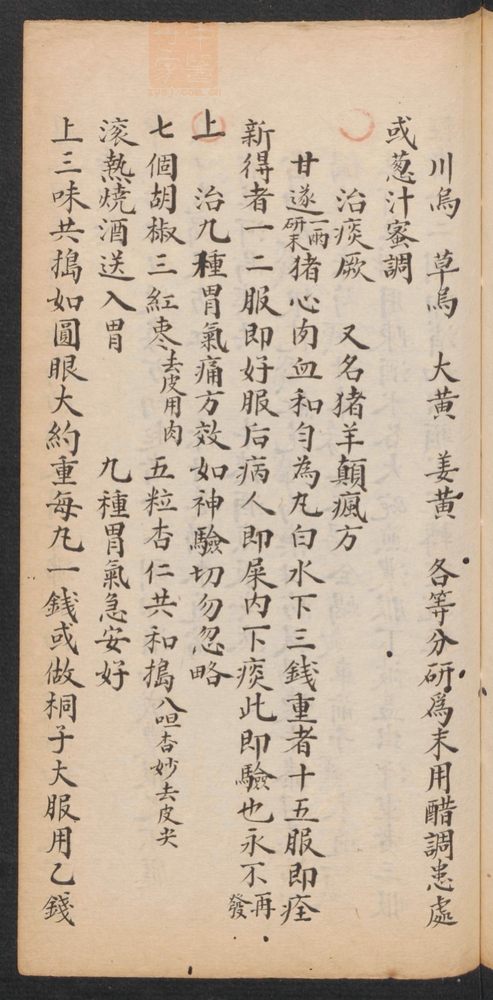 川烏　草烏　大黃　姜黃　各等分研爲末用醋調患處
或葱汁蜜調
治痰厥　又名猪羊顛瘋方
甘遂一兩研末猪心肉血和勻為丸白水下三錢重者十五服即痊
新得者一二服即好服后病人即屎內下痰此即驗也永不再發
上　治九種胃氣痛方效如神驗切勿忽略
七個胡椒三紅棗去皮用肉五粒杏仁共和搗八咀杏妙去皮尖
滚熱燒酒送入胃　九種胃氣急安好
上三味共搗如圓眼大約重每丸一錢或做桐子大服用乙錢